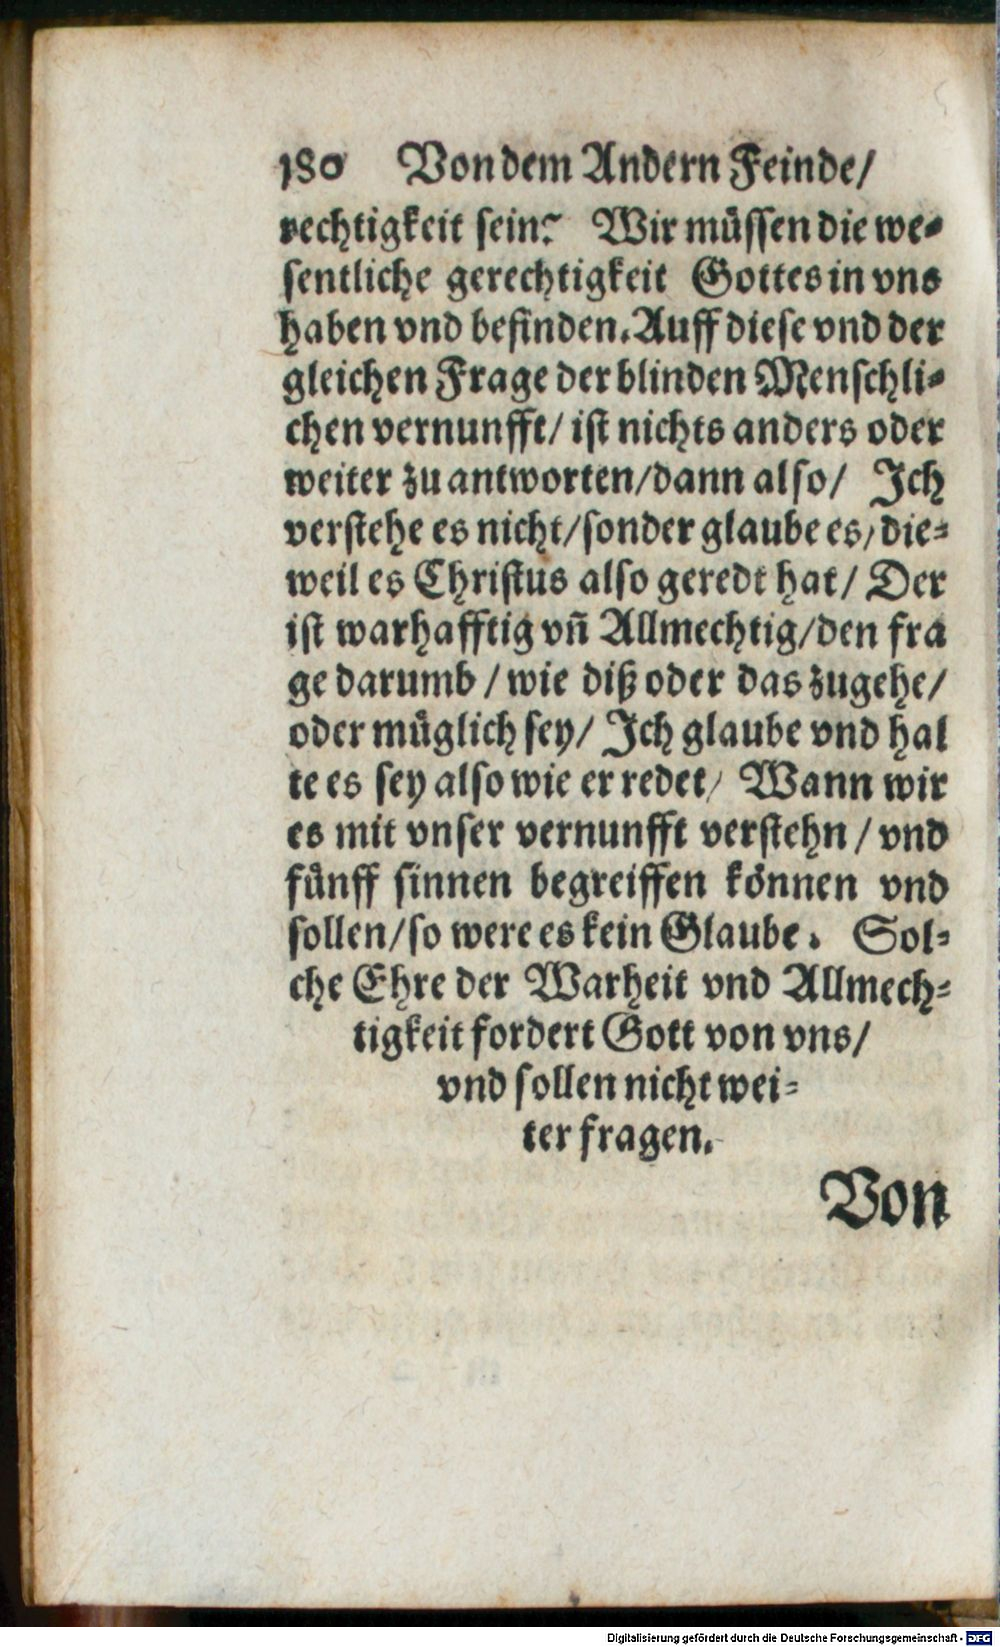 180 Von dem Andern Feinde/
rechtigkeit sein? Wir müssen die we-
sentliche gerechtigkeit Gottes in vns
haben vnd befinden. Auff diese vnd der
gleichen Frage der blinden Menschli-
chen vernunfft/ ist nichts anders oder
weiter zu antworten/dann also/ Ich
verstehe es nicht/sonder glaube es/die-
weil es Christus also geredt hat/ Der
ist warhafftig vñ Allmechtig/den fra
ge darumb / wie diß oder das zugehe/
oder müglich sey/ Ich glaube vnd hal
te es sey also wie er redet/ Wann wir
es mit vnser vernunfft verstehn / vnd
fünff sinnen begreiffen können vnd
sollen/so were es kein Glaube. Sol-
che Ehre der Warheit vnd Allmech-
tigkeit fordert Gott von vns/
vnd sollen nicht wei-
ter fragen.
Von
Digitalisierung gefördert durch die Deutsche Forschungsgemeinschaft - DFG